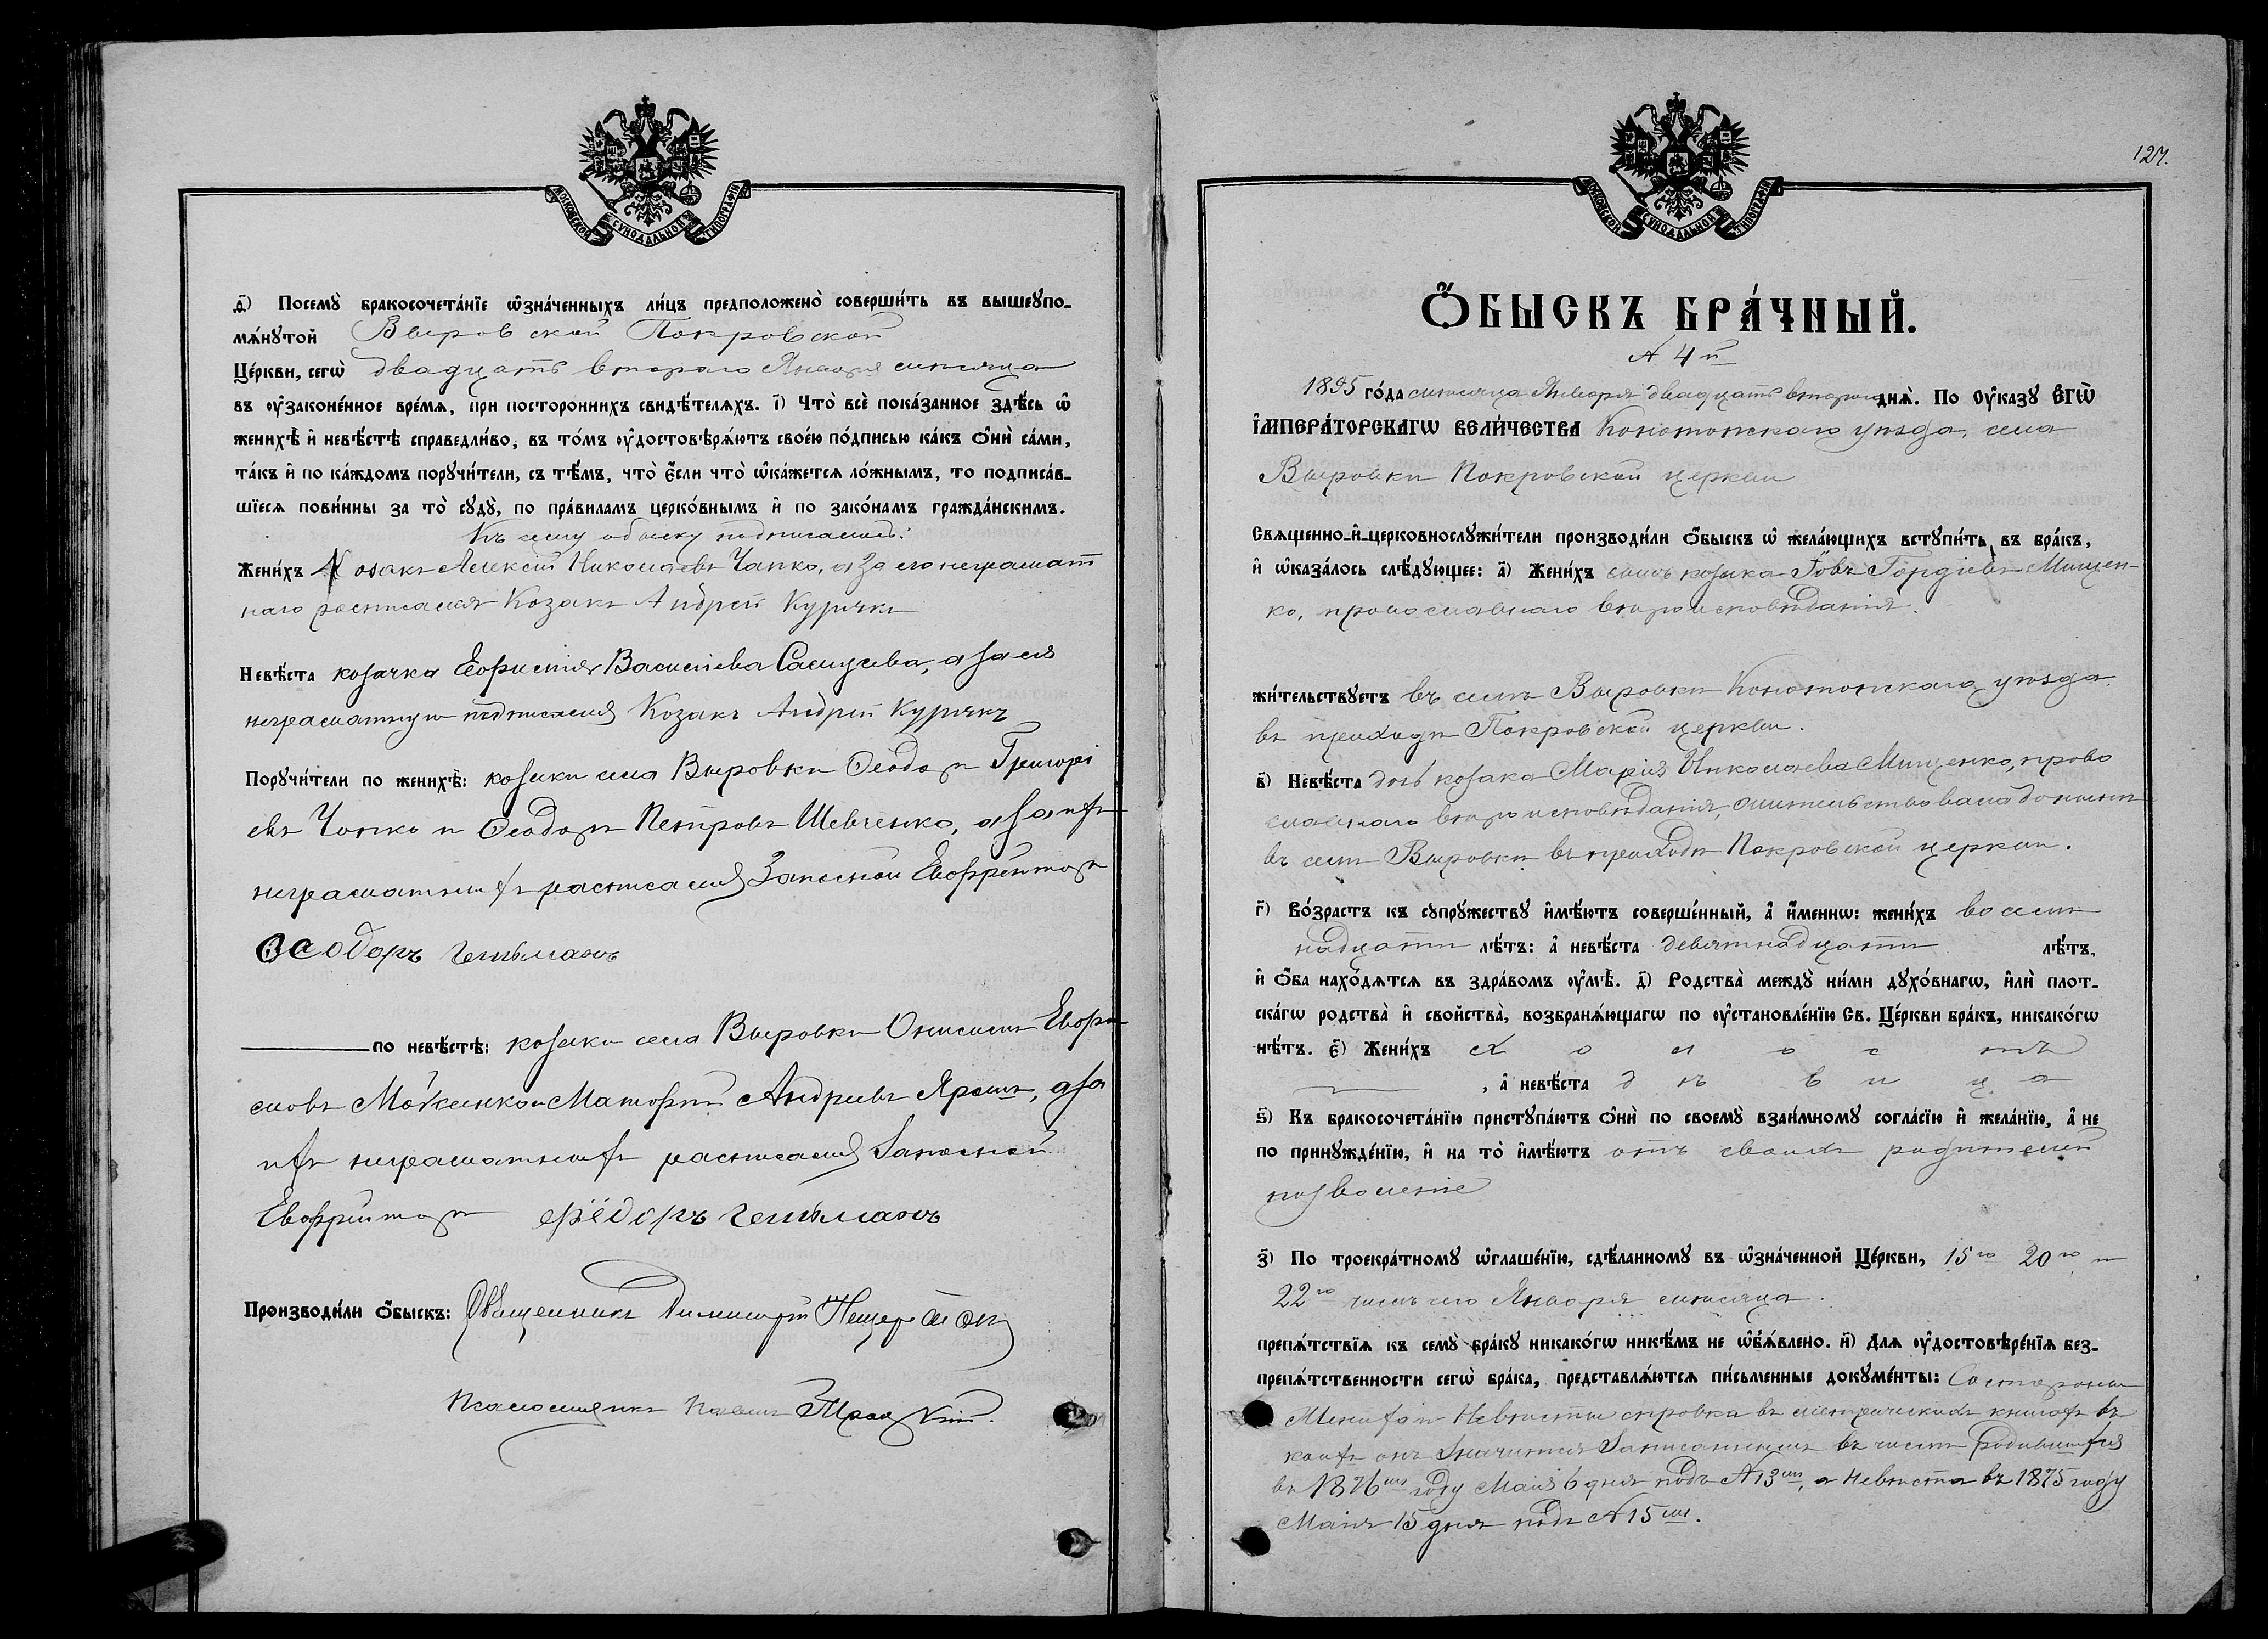 МОСКОВСКОЙ СѴНОДАЛЬНОЙ ТИПОГРАФІИ
ѳ҃) Посемꙋ̀ бракосочета́нїе ѡ҆зна́ченныхъ ли́цъ предположено̀ соверши́ть въ вышеꙋпо-
мѧ́нꙋтой Выровской Покровской
Це́ркви, сегѡ̀ двадцать второго Января мѣсяца
въ ᲂу҆зако́не́нное вре́мѧ, при посторо́ннихъ свидѣ́телѧхъ. і҃) Что̀ всѐ пока́занное здѣ́сь ѡ҆
женихѣ̀ и҆ невѣ́стѣ справедли́во, въ то́мъ ᲂу҆достовѣрѧ́ютъ свое́ю по́дписью ка́къ ѻ҆нѝ са́ми,
та́къ и҆ по ка́ждомъ порꙋчи́тели, съ тѣ́мъ, что̀ є҆́сли что̀ ѡ҆ка́жетсѧ ло́жнымъ, то подписа́в-
шїесѧ пови́нны за то̀ сꙋдꙋ̀, по пра́виламъ церко́внымъ и҆ по зако́намъ гражда́нскимъ.
Къ сему обыску подписались:
Жени́хъ Козакъ Алексѣй Николаевъ Чапко, а за его неграмат
наго росписался Козакъ Андрей Курячъ
Невѣ́ста козачка Евфимія Васильева, а за ея
неграматную подписался Козакъ Андрей Курячъ
Порꙋчи́тели по женихѣ̀: козаки села Выровки Ѳеодоръ Григорі
евъ Чопко и Ѳеодоръ Петровъ Шевченко, а за ихъ
неграматныхъ расписался Запасной Ефрейторъ
Ѳеодоръ Гетьманъ
по невѣ́стѣ: козаки села Выровки
Андреевъ Ярошъ, а за
ихъ неграматныхъ расписался Запасной
Ефрейторъ Ѳёдоръ Гетьманъ
Производи́ли ѻ҆́быскъ: Священникъ Димитрій
Псаломщикъ Павелъ
МОСКОВСКОЙ СѴНОДАЛЬНОЙ ТИПОГРАФІИ
127.
Ѻ҆́БЫСКЪ БРА́ЧНЫЙ.
№ 4й
1895 го́да мѣсяца Января двадцать второго днѧ̀. По ᲂу҆ка́зꙋ Є҆ГѠ̀
І҆МПЕРА́ТОРСКАГѠ ВЕЛИ́ЧЕСТВА Конотопскаго уѣзда, села
Выровки Покровской церкви
Свѧщенно-и҆-церковнослꙋжи́тели производи́ли ѻ҆́быскъ ѡ҆ жела́ющихъ встꙋпи́ть въ бра́къ,
и҆ ѡ҆каза́лось слѣ́дꙋющее: а҃) Жени́хъ сынъ козака Іовъ Гордіевъ Мищен-
ко, православнаго вѣроисповѣданія.
жи́тельствꙋетъ въ селѣ Выровки Конотопскаго уѣзда
въ приходѣ Покровской церкви.
в҃) Невѣ́ста дочь козака Марія Николаева Мищенко, право
славнаго вѣроисповѣданія, жительствовала донынѣ
въ селѣ Выровки въ приходѣ Покровской церкви.
г҃) Во́зрастъ къ сꙋпрꙋ́жествꙋ и҆мѣ́ютъ соверше́нный, а҆ и҆́меннѡ: жени́хъ восем
надцати лѣ́тъ: а҆ невѣ́ста девятнадцати лѣ́тъ,
и҆ ѻ҆́ба нахо́дѧтсѧ въ здра́вомъ ᲂу҆мѣ̀. д҃) Родства̀ междꙋ̀ ни́ми дꙋхо́внагѡ, и҆лѝ плот-
ска́гѡ родства̀ и҆ сво́йства̀, возбранѧ́ющагѡ по ᲂу҆становле́нїю Св. Це́ркви бра́къ, никако́гѡ
нѣ́тъ. є҃) Жени́хъ холостъ
, а҆ невѣ́ста дѣвица
ѕ҃) Къ бракосочета́нїю пристꙋпа́ютъ ѻ҆нѝ по своемꙋ̀ взаи́мномꙋ согла́сїю и҆ жела́нїю, а҆ не
по принꙋжде́нїю, и҆ на то̀ и҆мѣ́ютъ отъ своихъ родителей
позволеніе
з҃) По троекра́тномꙋ ѡ҆глаше́нїю, сдѣ́ланномꙋ въ ѡ҆зна́ченной Це́ркви, 15го 20го и
22го числъ сего Января мѣсяца.
препѧ́тствїѧ къ семꙋ̀ бра́кꙋ никако́гѡ никѣ́мъ не ѡ҆б̾ѧ́влено. и҃) Длѧ ᲂу҆достовѣре́нїѧ без-
препѧ́тственности сегѡ̀ бра́ка, представлѧ́ютсѧ пи́сьменные докꙋме́нты: Со стороны
Жениха и Невѣсты справка въ метрическихъ книгахъ въ
коихъ онъ значится записаннымъ въ числѣ родившихся
въ 1876мъ году Мая 6 дня подъ №13мъ, а невѣста въ 1875 году
Мая 15 дня подъ №15мъ.